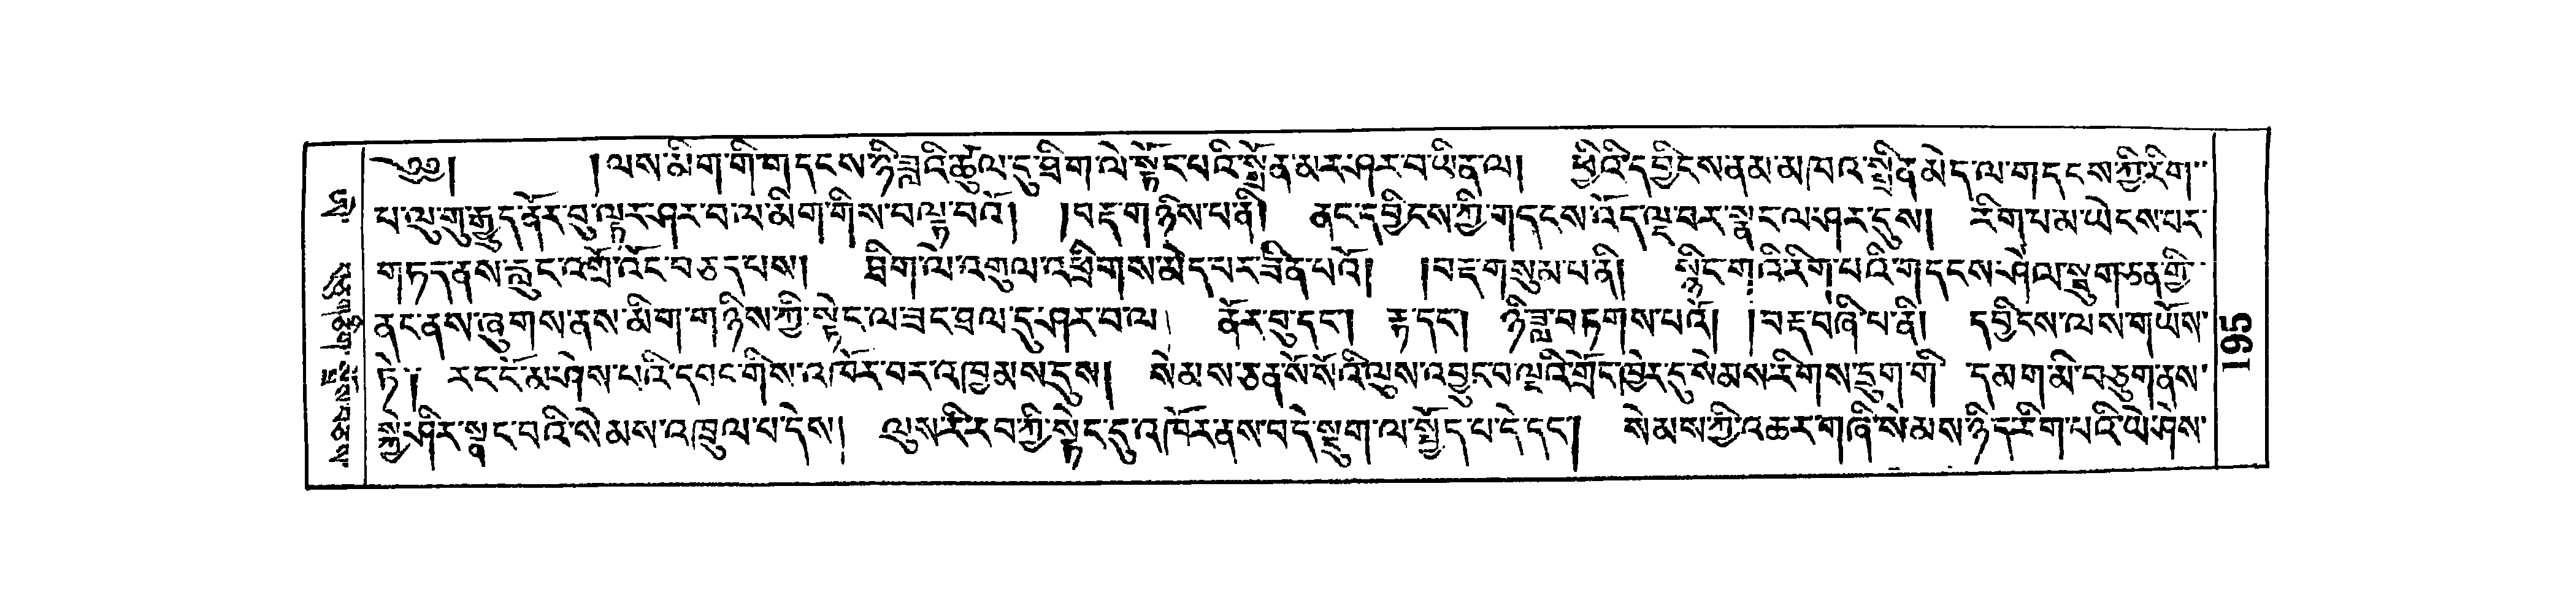 ༄༅། །ལས་མིག་གི་གདངས་ཉི་ཟླའི་ཚུལ་དུ་ཐིག་ལེ་སྟོང་པའི་སྒྲོན་མར་ཤར་བ་ཡིན་ལ། ཕྱིའི་དབྱིངས་ནམ་མཁའ་སྤྲིན་མེད་ལ་གདངས་ཀྱི་རིག་
པ་ལུ་གུ་རྒྱུད་ནོར་བུ་ལྟར་ཤར་བ་ལ་མིག་གིས་བལྟ་བའོ། །བརྡ་གཉིས་པ་ནི། ནང་དབྱིངས་ཀྱི་གདངས་འོད་ལྔ་བར་སྣང་ལ་ཤར་དུས། རིག་པ་མ་ཡེངས་པར་
གཏད་ནས་རླུང་འགྲོ་འོང་བཅད་པས། ཐིག་ལེ་འགུལ་འཕྲིགས་མེད་པར་ཟིན་པའོ། །བརྡ་གསུམ་པ་ནི། སྙིང་ག་འི་རིག་པའི་གདངས་ཤེལ་སྦུག་ཅན་གྱི་
ནང་ནས་ཞུགས་ནས་མིག་གཉིས་ཀྱི་སྟེང་ལ་ཟང་ཐལ་དུ་ཤར་བ་ལ། ནོར་བུ་དང་། རྟ་དང་། ཉི་ཟླ་བཏགས་པའོ། །བརྡ་བཞི་པ་ནི། དབྱིངས་ལས་གཡོས་
ཏེ། རང་ངོ་མ་ཤེས་པའི་དབང་གིས་འཁོར་བར་འཁྱམས་དུས། སེམས་ཅན་སོ་སོའི་ལུས་འབྱུང་བ་ལྔའི་གྲོང་ཁྱེར་དུ་སེམས་རིགས་དྲུག་གི དམག་མི་བཅུག་ནས་
སྐྱེ་ཤིར་སྣང་བའི་སེམས་འཁྲུལ་པ་དེས། ལུས་རི་རབ་ཀྱི་སྟེང་དུ་འཁོར་ནས་བདེ་སྡུག་ལ་སྤྱོད་པ་དེ་དང་། སེམས་ཀྱི་འཆར་གཞི་སེམས་ཉིད་རིག་པའི་ཡེ་ཤེས་
151